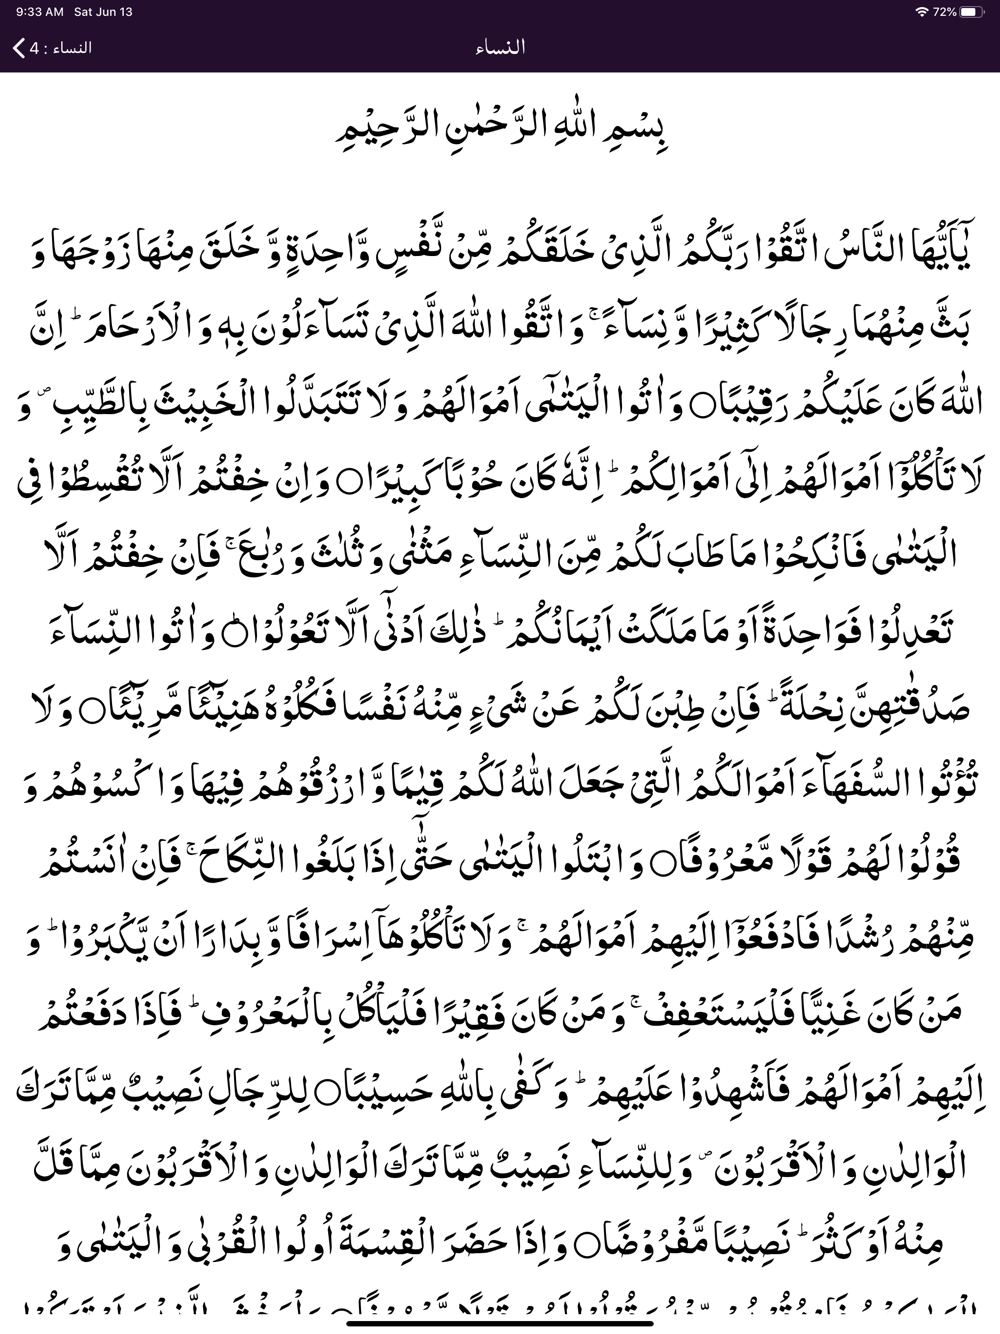 9:33 AM Sat Jun 13 72%
النساء : 4 النساء
بِسْمِ اللهِ الرَّحْمٰنِ الرَّحِيْمِ
يٰٓاَيُّهَا النَّاسُ اتَّقُوْا رَبَّكُمُ الَّذِىْ خَلَقَكُمْ مِّنْ نَّفْسٍ وَّاحِدَةٍ وَّ خَلَقَ مِنْهَا زَوْجَهَا وَ
بَثَّ مِنْهُمَا رِجَالًا كَثِيْرًا وَّ نِسَآءً‌ ۚ وَ اتَّقُوا اللهَ الَّذِىْ تَسَآءَلُوْنَ بِهٖ وَ الْاَرْحَامَ‌ ؕ اِنَّ
اللهَ كَانَ عَلَيْكُمْ رَقِيْبًا○ وَ اٰتُوا الْيَتٰمٰٓى اَمْوَالَهُمْ‌ وَلَا تَتَبَدَّلُوا الْخَبِيْثَ بِالطَّيِّبِ ۖ وَ
لَا تَاْكُلُوْۤا اَمْوَالَهُمْ اِلٰٓى اَمْوَالِكُمْ‌ ؕ اِنَّهٗ كَانَ حُوْبًا كَبِيْرًا○ وَاِنْ خِفْتُمْ اَلَّا تُقْسِطُوْا فِى
الْيَتٰمٰى فَانْكِحُوْا مَا طَابَ لَكُمْ مِّنَ النِّسَآءِ مَثْنٰى وَ ثُلٰثَ وَ رُبٰعَ‌ ۚ فَاِنْ خِفْتُمْ اَلَّا
تَعْدِلُوْا فَوَاحِدَةً اَوْ مَا مَلَكَتْ اَيْمَانُكُمْ‌ ؕ ذٰلِكَ اَدْنٰٓى اَلَّا تَعُوْلُوْا○ؕ وَ اٰتُوا النِّسَآءَ
صَدُقٰتِهِنَّ نِحْلَةً‌ ؕ فَاِنْ طِبْنَ لَكُمْ عَنْ شَىْءٍ مِّنْهُ نَفْسًا فَكُلُوْهُ هَنِيْٓئًا مَّرِيْٓئًا○ وَلَا
تُؤْتُوا السُّفَهَآءَ اَمْوَالَكُمُ الَّتِىْ جَعَلَ اللهُ لَكُمْ قِيٰمًا وَّ ارْزُقُوْهُمْ فِيْهَا وَ اكْسُوْهُمْ وَ
قُوْلُوْا لَهُمْ قَوْلًا مَّعْرُوْفًا○ وَ ابْتَلُوا الْيَتٰمٰى حَتّٰٓى اِذَا بَلَغُوا النِّكَاحَ‌ ۚ فَاِنْ اٰنَسْتُمْ
مِّنْهُمْ رُشْدًا فَادْفَعُوْۤا اِلَيْهِمْ اَمْوَالَهُمْ‌ ۚ وَلَا تَاْكُلُوْهَاۤ اِسْرَافًا وَّ بِدَارًا اَنْ يَّكْبَرُوْا‌ ؕ وَ
مَنْ كَانَ غَنِيًّا فَلْيَسْتَعْفِفْ‌ ۚ وَ مَنْ كَانَ فَقِيْرًا فَلْيَاْكُلْ بِالْمَعْرُوْفِ‌ ؕ فَاِذَا دَفَعْتُمْ
اِلَيْهِمْ اَمْوَالَهُمْ فَاَشْهِدُوْا عَلَيْهِمْ‌ ؕ وَ كَفٰى بِاللهِ حَسِيْبًا○ لِلرِّجَالِ نَصِيْبٌ مِّمَّا تَرَكَ
الْوَالِدٰنِ وَ الْاَقْرَبُوْنَ ۖ وَلِلنِّسَآءِ نَصِيْبٌ مِّمَّا تَرَكَ الْوَالِدٰنِ وَ الْاَقْرَبُوْنَ مِمَّا قَلَّ
مِنْهُ اَوْ كَثُرَ‌ ؕ نَصِيْبًا مَّفْرُوْضًا○ وَ اِذَا حَضَرَ الْقِسْمَةَ اُولُوا الْقُرْبٰى وَ الْيَتٰمٰى وَ